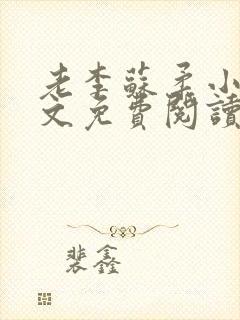 老李蘇柔小
文免費閱讀
裴鑫